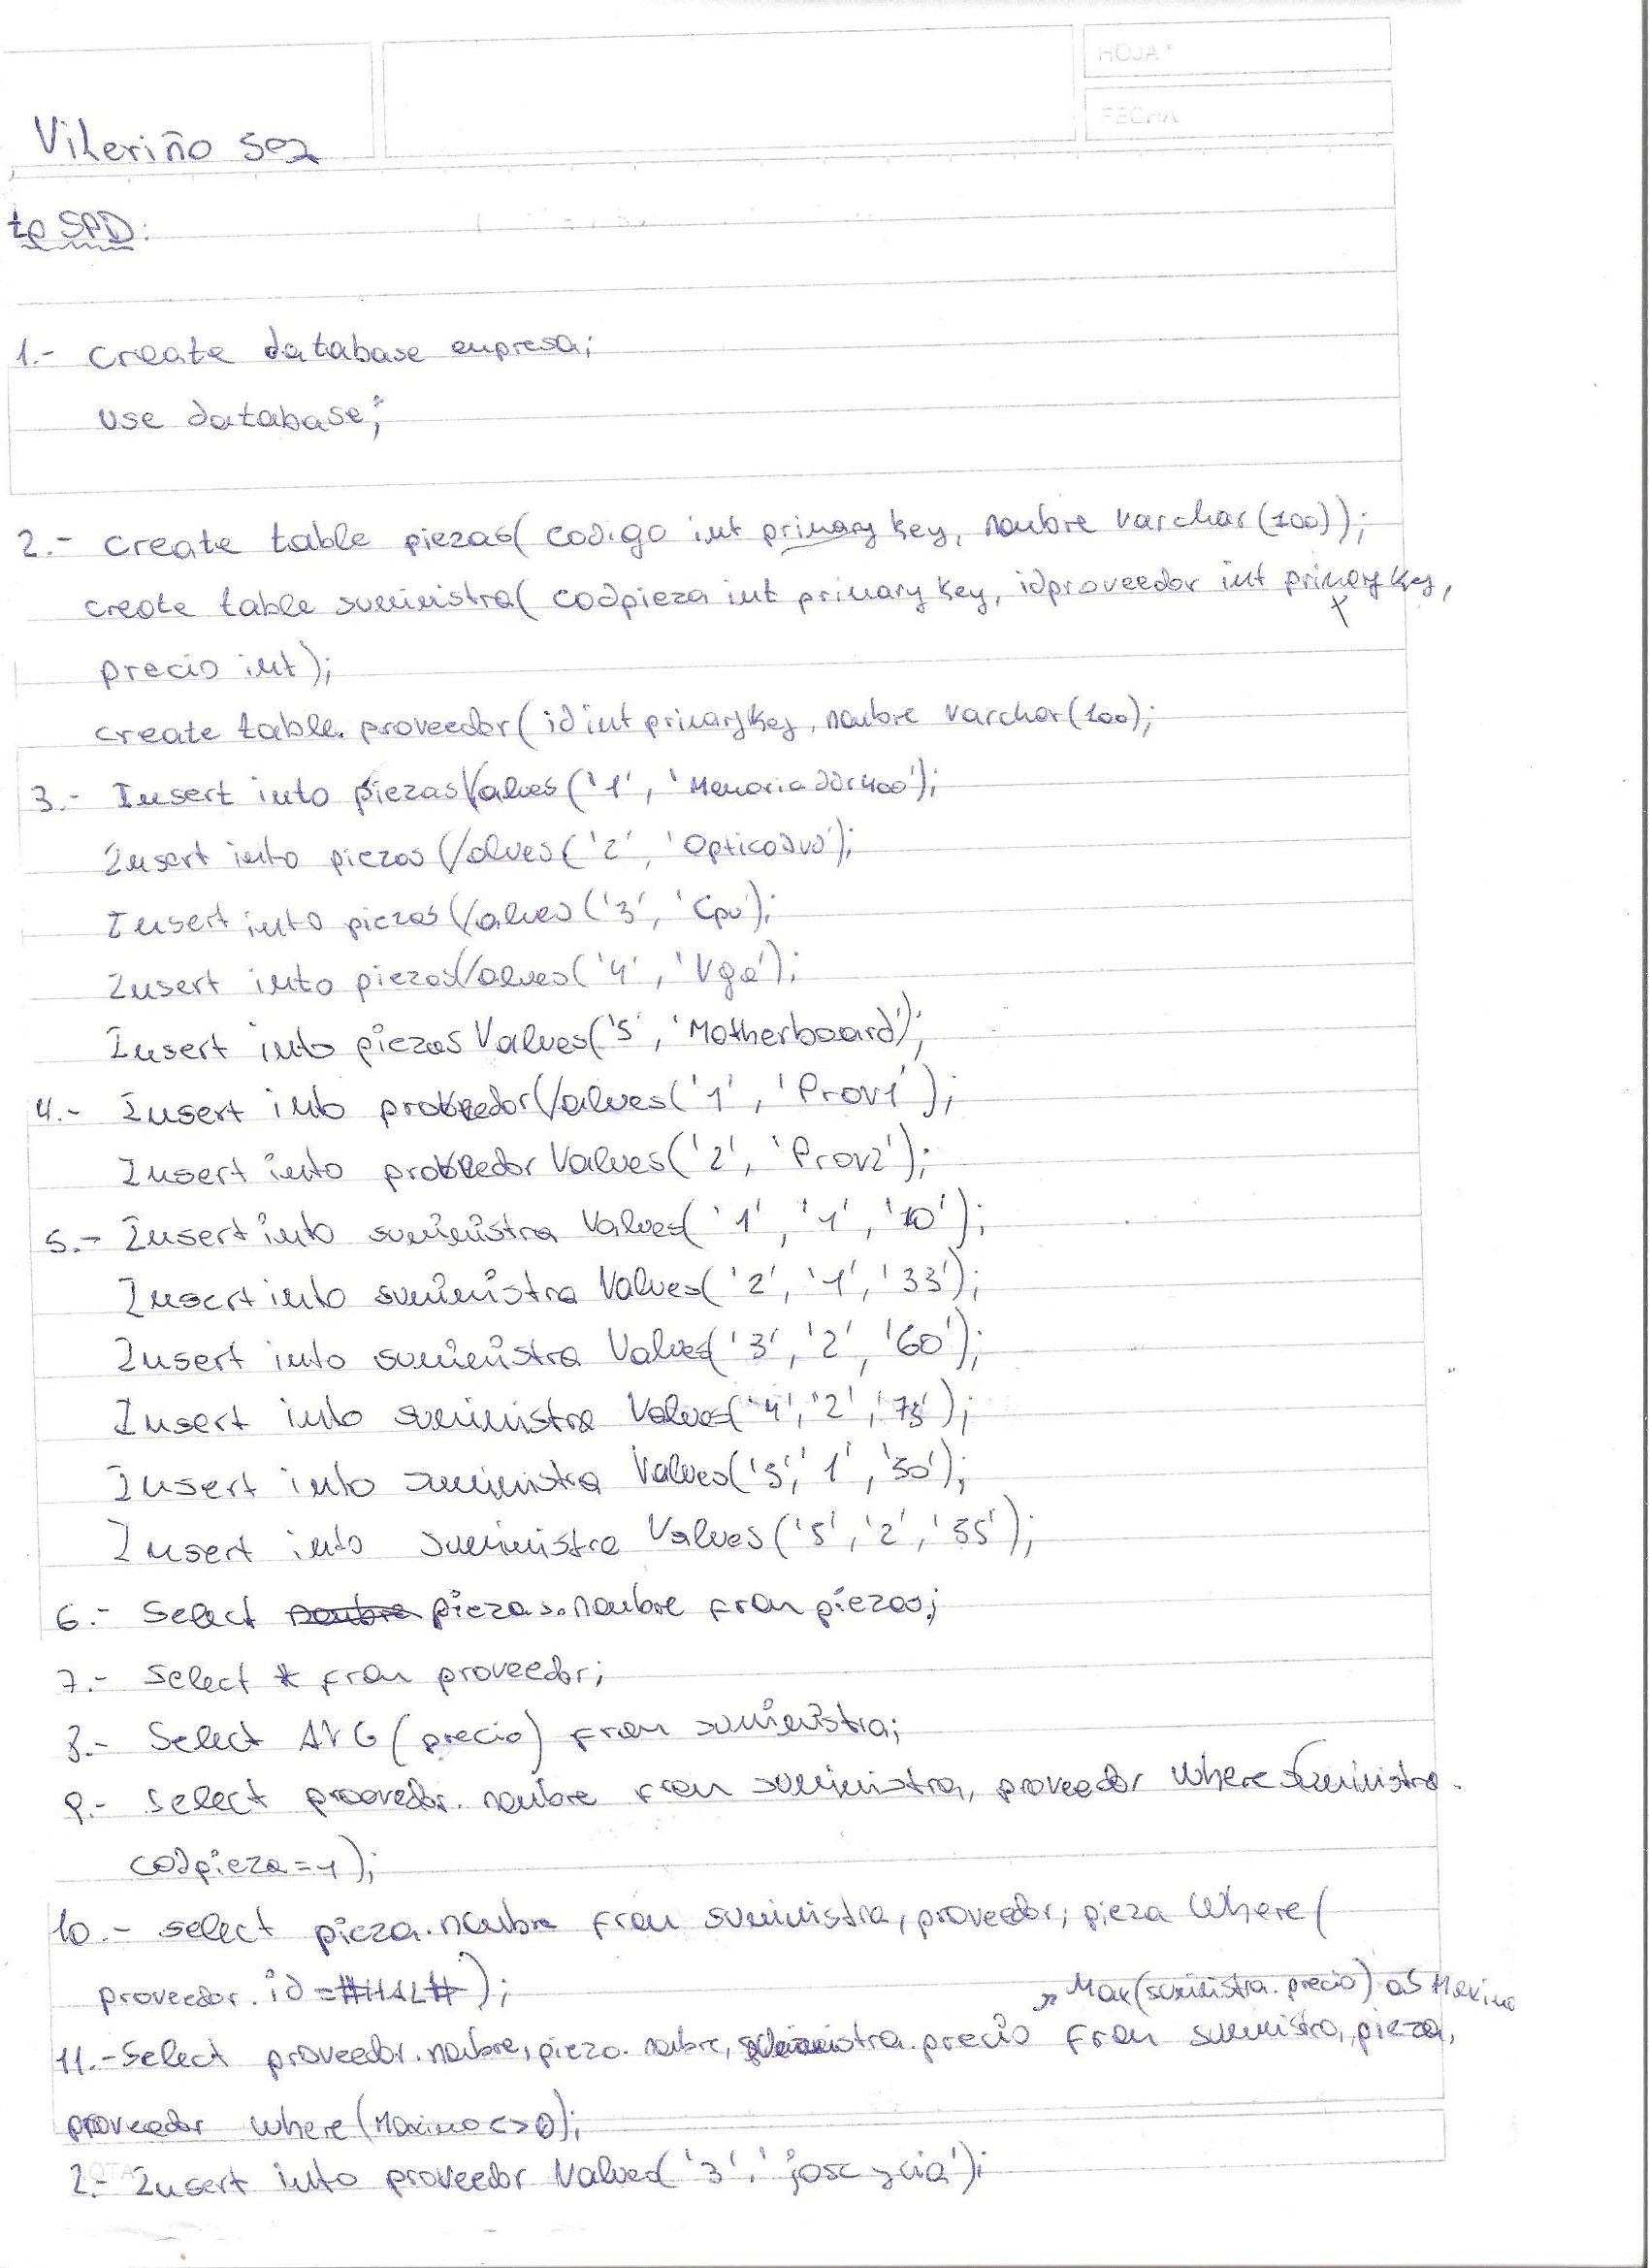 HOJA º
FECHA
Vileriño 502
tp SPD:
1.- create database empresa;
use database;
2.- create table piezas( codigo int primary key, nombre varchar(100));
create table suministra( codpieza int primary key, idproveedor int primary key,
precio int);
create table proveedor( id int primary key, nombre varchar(100);
3.- Insert into piezas Values('1', 'Memoria ddr400');
Insert into piezas Values('2', 'Opticodvd');
Insert into piezas Values('3', 'Cpu');
Insert into piezas Values('4', 'Vga');
Insert into piezas Values('5', 'Motherboard');
4.- Insert into proveedor Values('1', 'Prov1');
Insert into proveedor Values('2', 'Prov2');
5.- Insert into suministra Values('1', '1', '10');
Insert into suministra Values('2', '1', '33');
Insert into suministra Values('3', '2', '60');
Insert into suministra Values('4', '2', '75');
Insert into suministra Values('5', '1', '50');
Insert into suministra Values('5', '2', '55');
6.- Select nombre piezas.nombre from piezas;
7.- Select * from proveedor;
8.- Select AVG(precio) from suministra;
9.- Select proovedor.nombre from suministra, proveedor where (suministra.
codpieza=1);
10.- select pieza.nombre from suministra, proveedor, pieza Where(
proveedor.id=#HAL#);
Max(suministra.precio) as Maximo
11.- Select proveedor.nombre, pieza.nombre, suministra.precio from suministra, pieza,
proveedor where(Maximo<>0);
2.- Insert into proveedor Values('3', 'jose y cia');